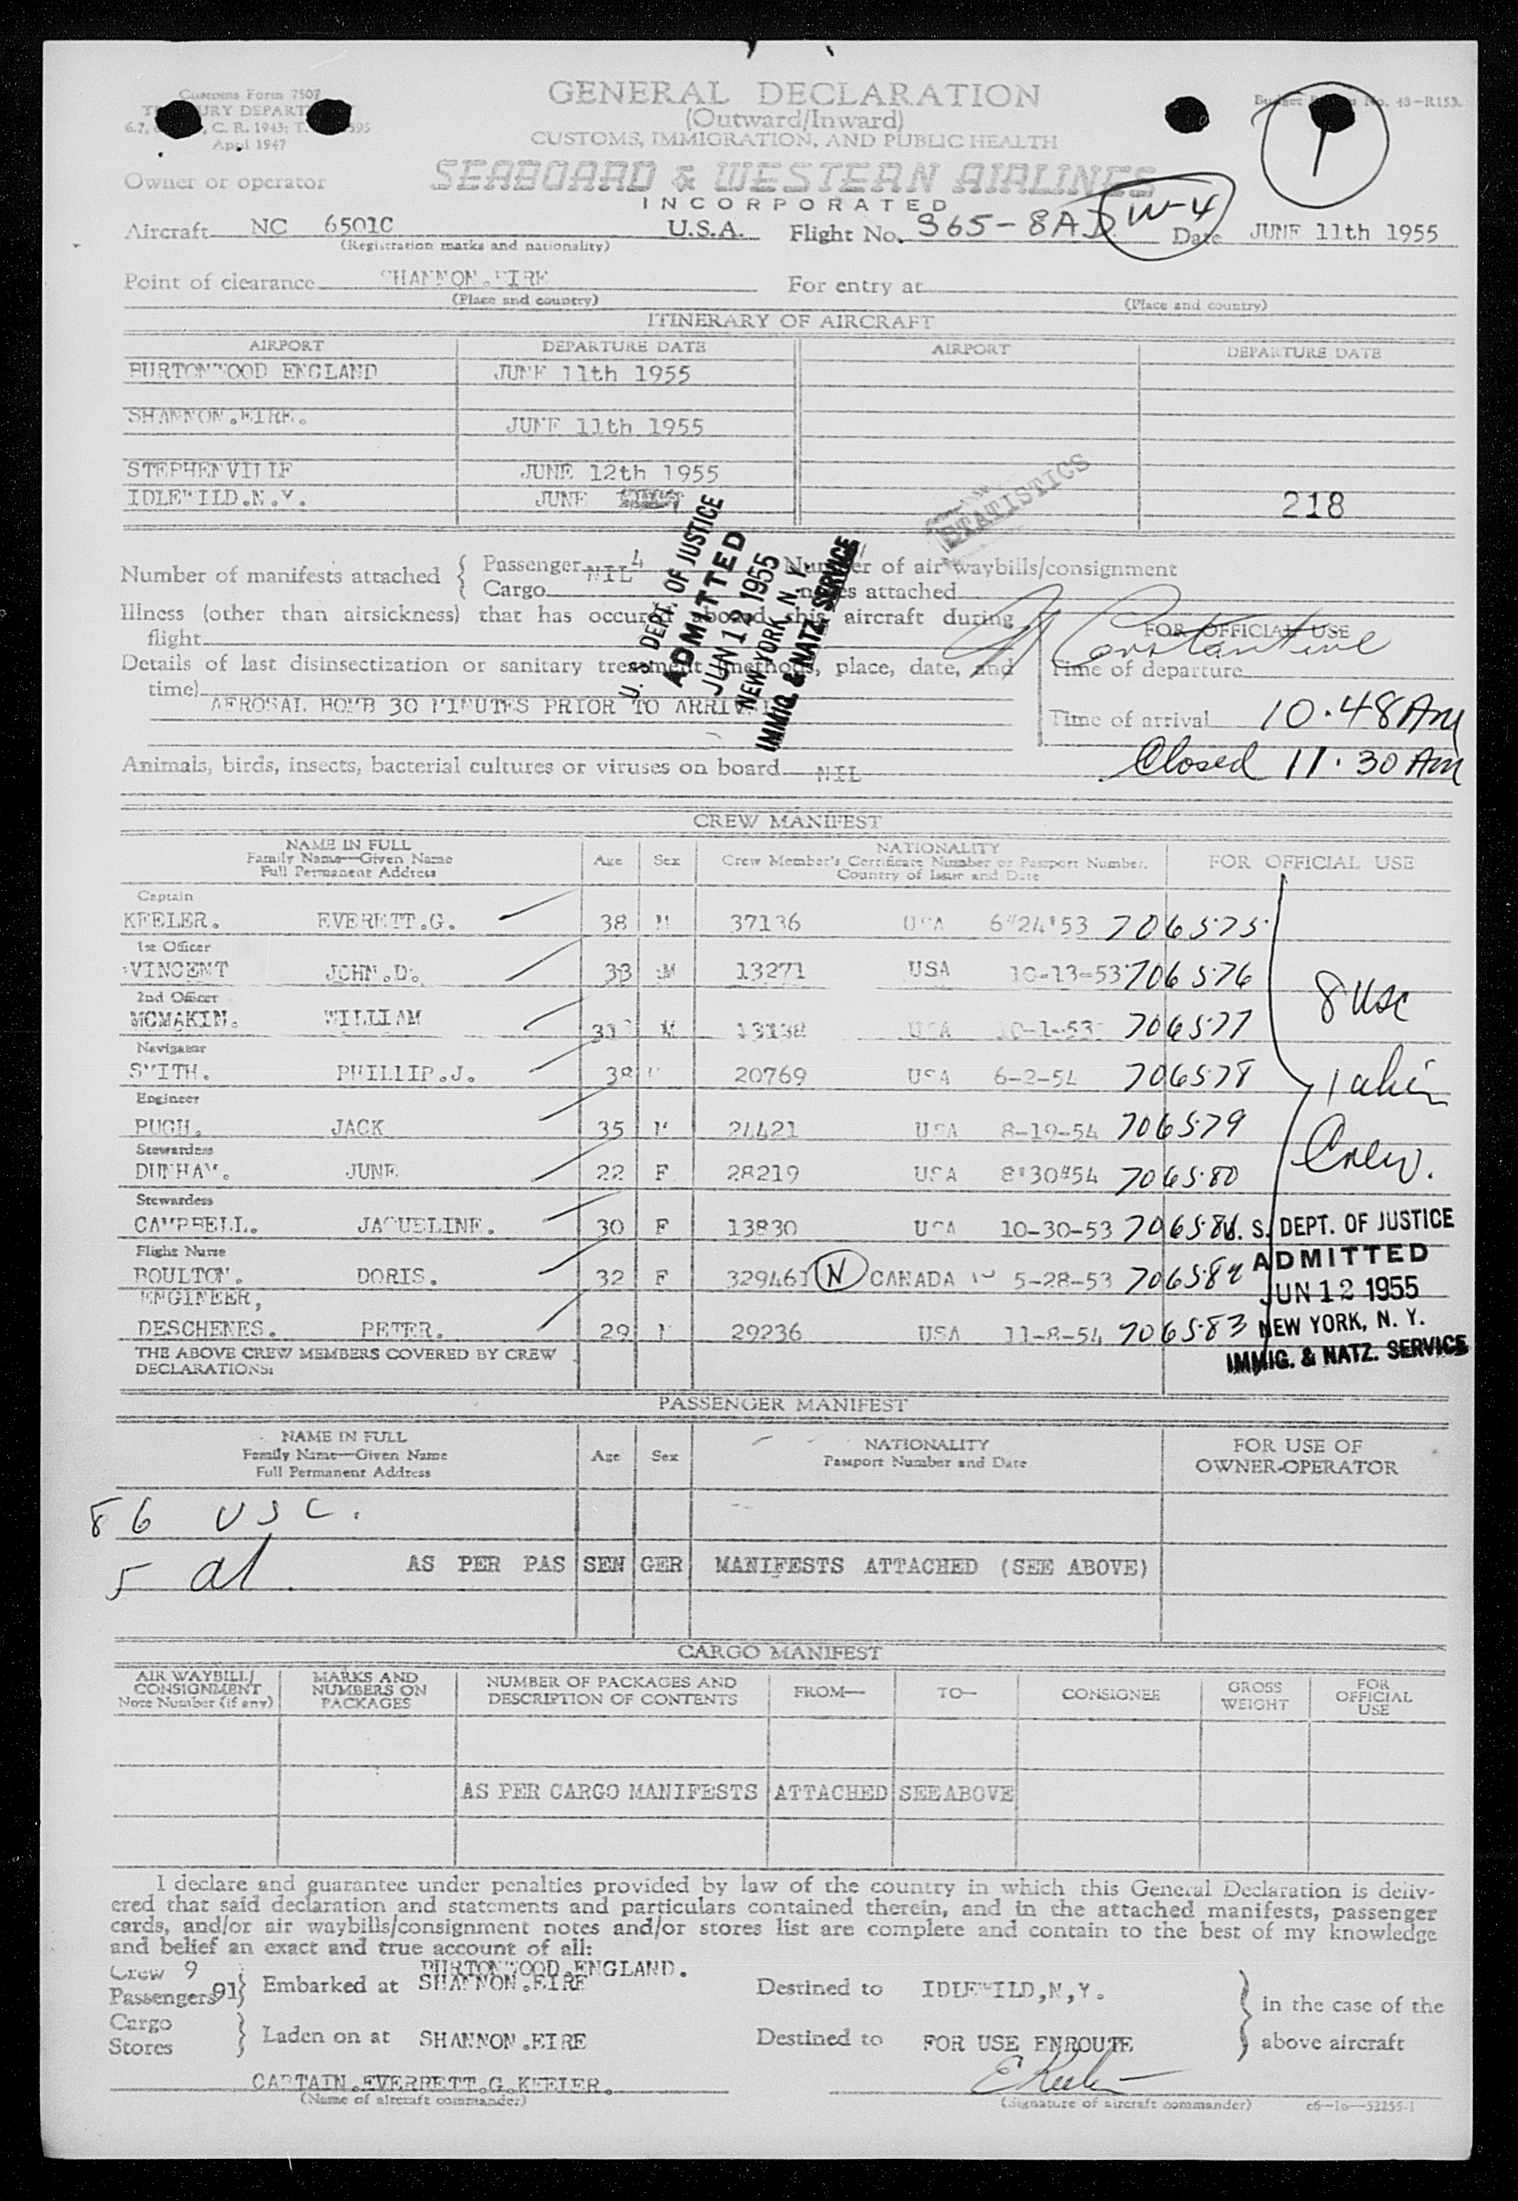 Customs Form 7507
GENERAL DECLARATION
(Outward/Inward)
CUSTOMS, IMMIGRATION, AND PUBLIC HEALTH
C. R. 1943; T.
April 1947
No. 43-R153.
1
SEABOARD & WESTERN AIRLINES
INCORPORATED
Owner or operator
Aircraft NC 6501C U.S.A. Flight No. S65-8AD W-4 Date JUNE 11th 1955
(Registration marks and nationality)
Point of clearance SHANNON.EIRE For entry at
(Place and country) (Place and country)
ITINERARY OF AIRCRAFT
AIRPORT DEPARTURE DATE AIRPORT DEPARTURE DATE
BURTONWOOD ENGLAND JUNE 11th 1955
SHANNON.EIRE. JUNE 11th 1955
STEPHENVILLE JUNE 12th 1955
IDLEWILD.N.Y. JUNE
218
STATISTICS
Number of manifests attached { Passenger 4 Number of air waybills/consignment
Cargo NIL notes attached
Illness (other than airsickness) that has occurred aboard this aircraft during
flight
Details of last disinsectization or sanitary treatment (methods, place, date, and
time)
AEROSAL BOMB 30 MINUTES PRIOR TO ARRIVAL
U. S. DEPT. OF JUSTICE
ADMITTED
JUN 12 1955
NEW YORK, N. Y.
IMMIG. & NATZ. SERVICE
Constantine
FOR OFFICIAL USE
Time of departure
Time of arrival 10.48 AM
Closed 11.30 AM
Animals, birds, insects, bacterial cultures or viruses on board NIL
CREW MANIFEST
NAME IN FULL
Family Name—Given Name
Full Permanent Address
Age Sex
NATIONALITY
Crew Member's Certificate Number or Passport Number.
Country of Issue and Date
FOR OFFICIAL USE
Captain
KEELER. EVERETT.G. 38 M 37136 USA 6"24'53 706575
1st Officer
VINCENT JOHN.D. 33 M 13271 USA 10-13-53 706576
2nd Officer
MCMAKIN. WILLIAM M 13138 USA 10-1-53 706577
Navigator
SMITH. PHILLIP.J. 38 M 20769 USA 6-2-54 706578
Engineer
PUGH. JACK 35 M 24421 USA 8-19-54 706579
Stewardess
DUNHAM. JUNE 22 F 28219 USA 8'30"54 706580
Stewardess
CAMPBELL. JAQUELINE. 30 F 13830 USA 10-30-53 70658
Flight Nurse
BOULTON. DORIS. 32 F 329461 N CANADA 5-28-53 706582
ENGINEER,
DESCHENES. PETER. 29 M 29236 USA 11-8-54 706583
8 USC
1 alien
Crew.
U. S. DEPT. OF JUSTICE
ADMITTED
JUN 12 1955
NEW YORK, N. Y.
IMMIG. & NATZ. SERVICE
THE ABOVE CREW MEMBERS COVERED BY CREW
DECLARATIONS:
PASSENGER MANIFEST
NAME IN FULL
Family Name—Given Name
Full Permanent Address
Age Sex
NATIONALITY
Passport Number and Date
FOR USE OF
OWNER-OPERATOR
86 USC.
5 al AS PER PASSENGER MANIFESTS ATTACHED (SEE ABOVE)
CARGO MANIFEST
AIR WAYBILL/
CONSIGNMENT
Note Number (if any)
MARKS AND
NUMBERS ON
PACKAGES
NUMBER OF PACKAGES AND
DESCRIPTION OF CONTENTS
FROM— TO— CONSIGNEE
GROSS
WEIGHT
FOR
OFFICIAL
USE
AS PER CARGO MANIFESTS ATTACHED SEE ABOVE
I declare and guarantee under penalties provided by law of the country in which this General Declaration is deliv-
ered that said declaration and statements and particulars contained therein, and in the attached manifests, passenger
cards, and/or air waybills/consignment notes and/or stores list are complete and contain to the best of my knowledge
and belief an exact and true account of all:
Crew 9 BURTONWOOD.ENGLAND.
Passengers 91} Embarked at SHANNON.EIRE Destined to IDLEWILD,N,Y. in the case of the
Cargo
Stores } Laden on at SHANNON.EIRE Destined to FOR USE ENROUTE above aircraft
CAPTAIN.EVERRETT.G.KEELER. E Keeler
(Name of aircraft commander) (Signature of aircraft commander) c6—16—52255-1